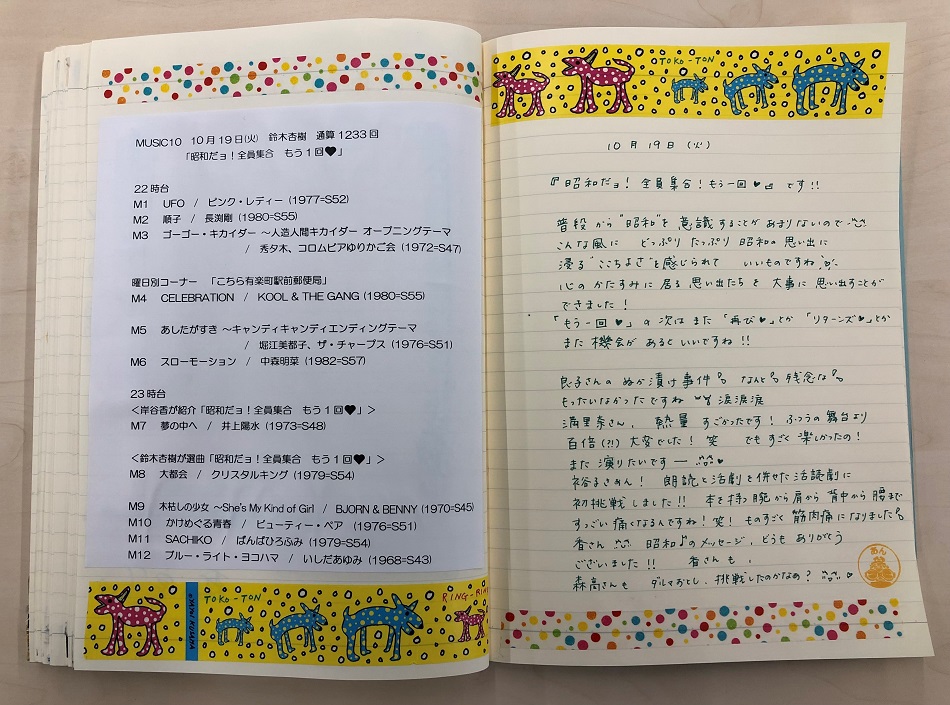 MUSIC10 10月19日(火) 鈴木杏樹 通算1233回
「昭和だョ！全員集合 もう1回♥」
22時台
M1 UFO / ピンク・レディー (1977=S52)
M2 順子 / 長渕剛 (1980=S55)
M3 ゴーゴー・キカイダー ～人造人間キカイダー オープニングテーマ
/ 秀夕木、コロムビアゆりかご会 (1972=S47)
曜日別コーナー 「こちら有楽町駅前郵便局」
M4 CELEBRATION / KOOL & THE GANG (1980=S55)
M5 あしたがすき ～キャンディキャンディエンディングテーマ
/ 堀江美都子、ザ・チャープス (1976=S51)
M6 スローモーション / 中森明菜 (1982=S57)
23時台
＜岸谷香が紹介「昭和だョ！全員集合 もう1回♥」＞
M7 夢の中へ / 井上陽水 (1973=S48)
＜鈴木杏樹が選曲「昭和だョ！全員集合 もう1回♥」＞
M8 大都会 / クリスタルキング (1979=S54)
M9 木枯しの少女 ～She's My Kind of Girl / BJORN & BENNY (1970=S45)
M10 かけめぐる青春 / ビューティー・ペア (1976=S51)
M11 SACHIKO / ばんばひろふみ (1979=S54)
M12 ブルー・ライト・ヨコハマ / いしだあゆみ (1968=S43)
TOKO-TON
RING-RING
TOKO-TON
10月19日(火)
『昭和だョ！全員集合！もう一回♥』です!!
普段から"昭和"を意識することがあまりないので
こんな風に どっぷり たっぷり 昭和の思い出に
浸る"ここちよさ"を感じられて いいものですね
心のかたすみに居る思い出たちを大事に思い出すことが
できました！
「もう一回♥」の次はまた「再び♥」とか「リターンズ♥」とか
また機会があるといいですね!!
良子さんのぬか漬け事件 なんと 残念な
もったいなかったですね 涙涙涙
満里奈さん、熱量すごかったです！ふつうの舞台より
百倍(?!)大変でした！笑 でもすごく楽しかったの！
また演りたいです ♥
裕子さぁん！朗読と活劇を併せた活読劇に
初挑戦しました!! 本を持つ腕から肩から背中から腰まで
すっごい痛くなるんですね！笑！ものすごく筋肉痛になりました
香さん 昭和♪のメッセージ、どうもありがとう
ございました!! 香さんも、
森高さんも ダルマおとし、挑戦したのかなぁ？ ♥
あん